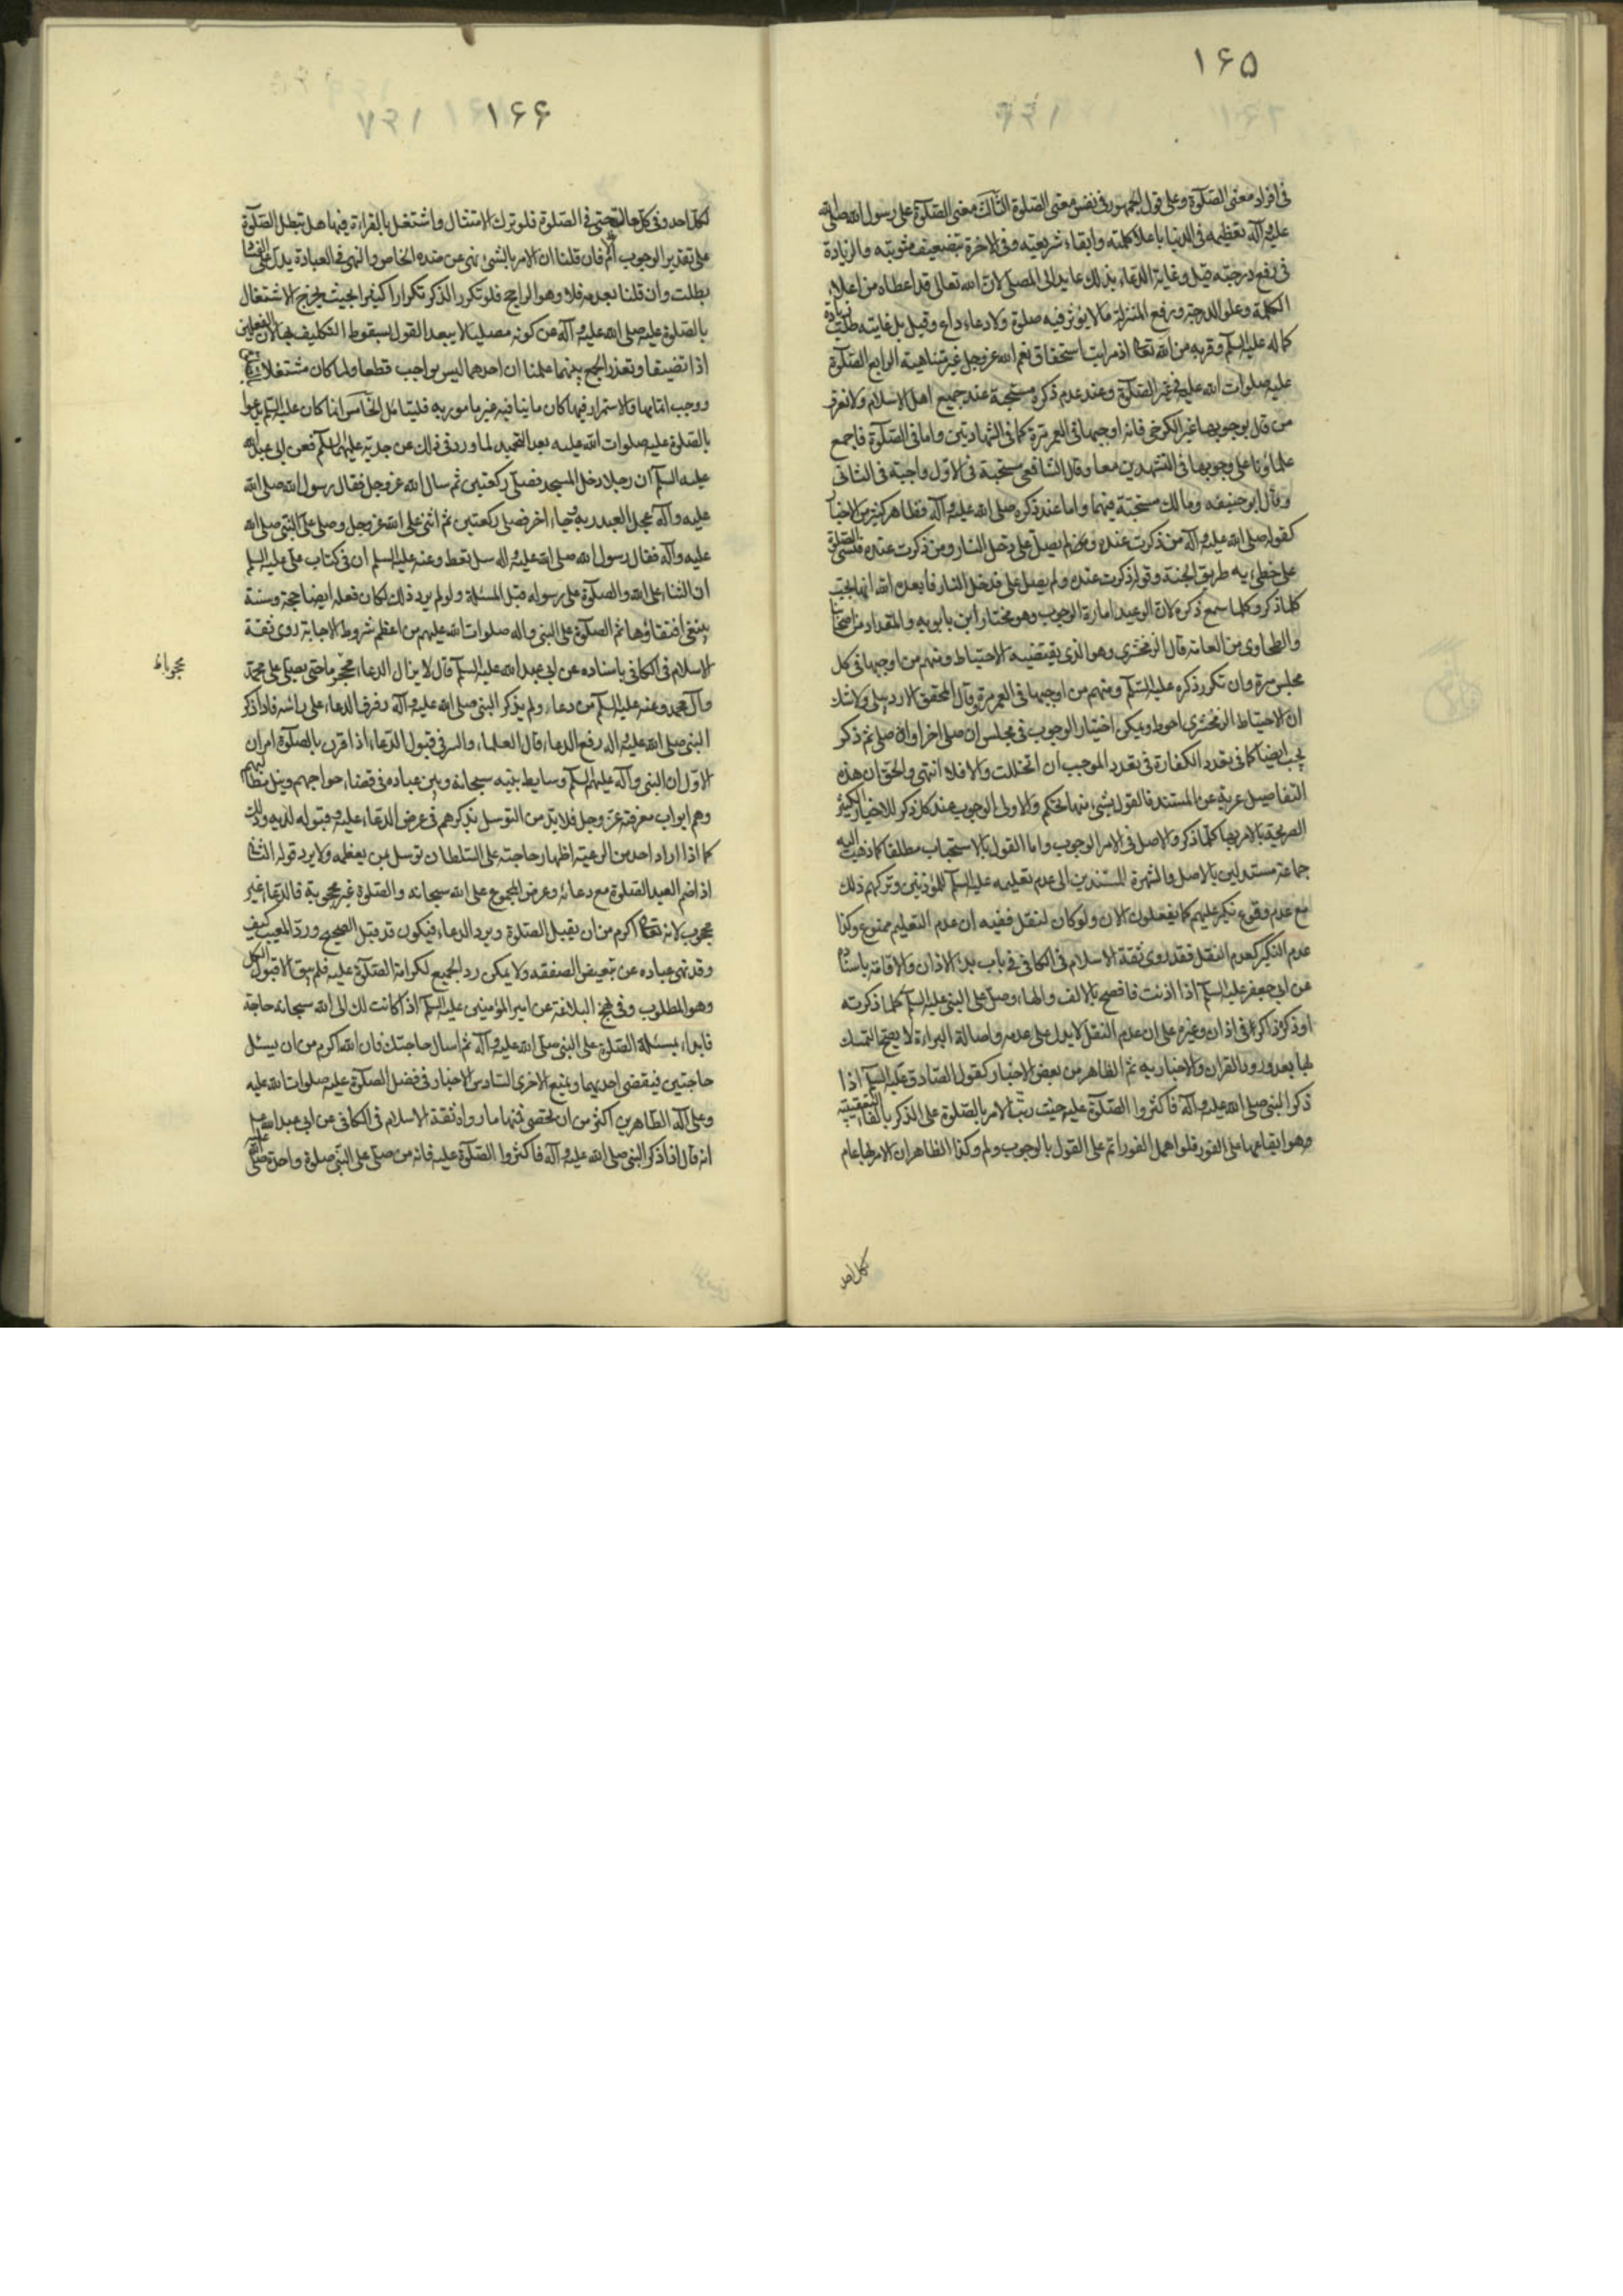 ۱۶۵
فی افراد معنی الصلوة وعلی قول الجمهور فی نفس معنی الصلوة الثالث معنی الصلوة علی رسول الله صلی الله
علیه وآله تعظیمه فی الدنیا باعلاء کلمته وابقاء شریعته وفی الاخرة بتضعیف مثوبته والزیادة
فی رفع درجته قیل وغایة الدعاء بذلك عاید الی المصلی لان الله تعالی قد اعطاه من اعلاء
الکلمة وعلو الدرجة ورفع المنزلة مالا یؤثر فیه صلوة ولا دعاء داع وقیل بل غایته طلب زیادة
کماله علیه السلم وقربه من الله تعالی اذ مراتب استحقاق نعم الله عز وجل غیر متناهیة الرابع الصلوة
علیه صلوات الله علیه فی غیر الصلوة وعند عدم ذکره مستحبة عند جمیع اهل الاسلام ولا نعرف
من قال بوجوبها غیر الکرخی فانه اوجبها فی العمر مرة کما فی الشهادتین واما فی الصلوة فاجمع
علماؤنا علی وجوبها فی التشهدین معا وقال الشافعی مستحبة فی الاول واجبة فی الثانی
وقال ابو حنیفه ومالك مستحبة فیهما واما عند ذکره صلی الله علیه وآله فظاهر کثیر من الاخبار
کقوله صلی الله علیه وآله من ذکرت عنده ولم یصل علی دخل النار ومن ذکرت عنده فنسی الصلوة
علی خطی به طریق الجنة وقوله ذکرت عنده ولم یصل علی فدخل النار فابعده الله انها تجب
کلما ذکر وکلما سمع ذکره لان الوعید امارة الوجوب وهو مختار ابن بابویه والمقداد من اصحابنا
والطحاوی من العامة قال الزمخشری وهو الذی یقتضیه الاحتیاط ومنهم من اوجبها فی کل
مجلس مرة وان تکرر ذکره علیه السلم ومنهم من اوجبها فی العمر مرة وقال المحقق الاردبیلی ولا شك
ان الاحتیاط الزمخشری احوط ویمکن اختیار الوجوب فی مجلس ان صلی اخرا وان صلی ثم ذکر
یجب ایضا کما فی تعدد الکفارة فی تعدد الموجب ان اتخللت والا فلا انتهی والحق ان هذه
التفاصیل عریة عن المستند فالقول بشیء منها تحکم والاولی الوجوب عند کل ذکر للاخبار الکثیرة
الصریحة بالامر بها کلما ذکر والاصل فی الامر الوجوب واما القول بالاستحباب مطلقا کما ذهب الیه
جماعة مستدلین بالاصل والشهرة المستندین الی عدم تعلیمه علیه السلم للمؤذنین وترکهم ذلك
مع عدم وقوع نکیر علیهم کما یفعلون الان ولو کان لنقل ففیه ان عدم التعلیم ممنوع وکذا
عدم النکیر کعدم النقل فقد روی ثقة الاسلام فی الکافی فی باب بدء الاذان والاقامة باسناده
عن ابی جعفر علیه السلم اذا اذنت فافصح بالالف والهاء وصل علی النبی علیه السلم کلما ذکرته
او ذکره ذاکر فی اذان وغیره علی ان عدم النقل لا یدل علی عدمه واصالة البراءة لا یصح التمسك
بها بعد ورود القران والاخبار به ثم الظاهر من بعض الاخبار کقول الصادق علیه السلم اذا
ذکر النبی صلی الله علیه وآله فاکثروا الصلوة علیه حیث رتب الامر بالصلوة علی الذکر بالفاء التعقیبیة
وهو ایقاعها علی الفور فلو اهمل الفور اثم علی القول بالوجوب ولم وکذا الظاهر ان الامر بها عام
کل احد
۱۶۶
لکل احد وفی کل حالة حتی فی الصلوة فلو ترك الامتثال واشتغل بالقراءة فیها هل تبطل الصلوة
علی تقدیر الوجوب ام لا فان قلنا ان الامر بالشیء نهی عن ضده الخاص والنهی فی العبادة یدل علی الفساد
بطلت وان قلنا بعدمه فلا وهو الراجح فلو تکرر الذکر تکرارا کثیرا بحیث یخرج الاشتغال
بالصلوة علیه صلی الله علیه وآله عن کونه مصلیا لا یبعد القول بسقوط التکلیف بها لان الفعلین
اذا تضیقا وتعذر الجمع بینهما علمنا ان احدهما لیس بواجب قطعا ولما کان مشتغلا بالصلوة
ووجب اتمامها والاستمرار فیها کان ما ینافیه غیر مامور به فلیتامل الخامس انما کان علیه السلم یدعوا
بالصلوة علیه صلوات الله علیه بعد التحمید لما ورد فی ذلك عن جدیه علیهما السلم فعن ابی عبد الله
علیه السلم ان رجلا دخل المسجد فصلی رکعتین ثم سال الله عز وجل فقال رسول الله صلی الله
علیه وآله عجل العبد ربه وجاء اخر فصلی رکعتین ثم اثنی علی الله عز وجل وصلی علی النبی صلی الله
علیه وآله فقال رسول الله صلی الله علیه واله سل تعط وعنه علیه السلم ان فی کتاب علی علیه السلم
ان الثناء علی الله والصلوة علی رسوله قبل المسئلة ولو لم یرد ذلك لکان فعله ایضا حجة وسنة
ینبغی اقتفاؤها ثم الصلوة علی النبی واله صلوات الله علیهم من اعظم شروط الاجابة روی ثقة
الاسلام فی الکافی باسناده عن ابی عبد الله علیه السلم قال لا یزال الدعاء محجوبا حتی یصلی علی محمد
محجوبا ظ
وآل محمد وعنه علیه السلم من دعاء ولم یذکر النبی صلی الله علیه وآله رفرف الدعاء علی راسه فاذا ذکر
النبی صلی الله علیه واله رفع الدعاء قال العلماء والسر فی قبول الدعاء اذا قرن بالصلوة امران
الاول ان النبی وآله علیهم السلم وسایط بینه سبحانه وبین عباده فی قضاء حوایجهم ونیل مطالبهم
وهم ابواب معرفته عز وجل فلا بد من التوسل بذکرهم فی عرض الدعاء علیه وقبوله لدیه وذلك
کما اذا اراد احد من الرعیة اظهار حاجته علی السلطان توسل بمن یعظمه ولا یرد قوله الثانی
اذا ضم العبد الصلوة مع دعائه وعرض المجموع علی الله سبحانه والصلوة غیر محجوبة فالدعاء غیر
محجوب لانه تعالی اکرم من ان یقبل الصلوة ویرد الدعاء فیکون قد قبل الصحیح ورد المعیب کیف
وقد نهی عباده عن تبعیض الصفقه ولا یمکن رد الجمیع لکرامة الصلوة علیه فلم یبق الا قبول الکل
وهو المطلوب وفی نهج البلاغة عن امیر المؤمنین علیه السلم اذا کانت لك الی الله سبحانه حاجة
فابداء بمسئلة الصلوة علی النبی صلی الله علیه وآله ثم اسال حاجتك فان الله اکرم من ان یسئل
حاجتین فیقضی احدیهما ویمنع الاخری السادس الاخبار فی فضل الصلوة علیه صلوات الله علیه
وعلی آله الطاهرین اکثر من ان تحصی فمنها ما رواه ثقة الاسلام فی الکافی عن ابی عبد الله علیه السلم
انه قال اذا ذکر النبی صلی الله علیه وآله فاکثروا الصلوة علیه فانه من صلی علی النبی صلوة واحدة صلی الله علیه